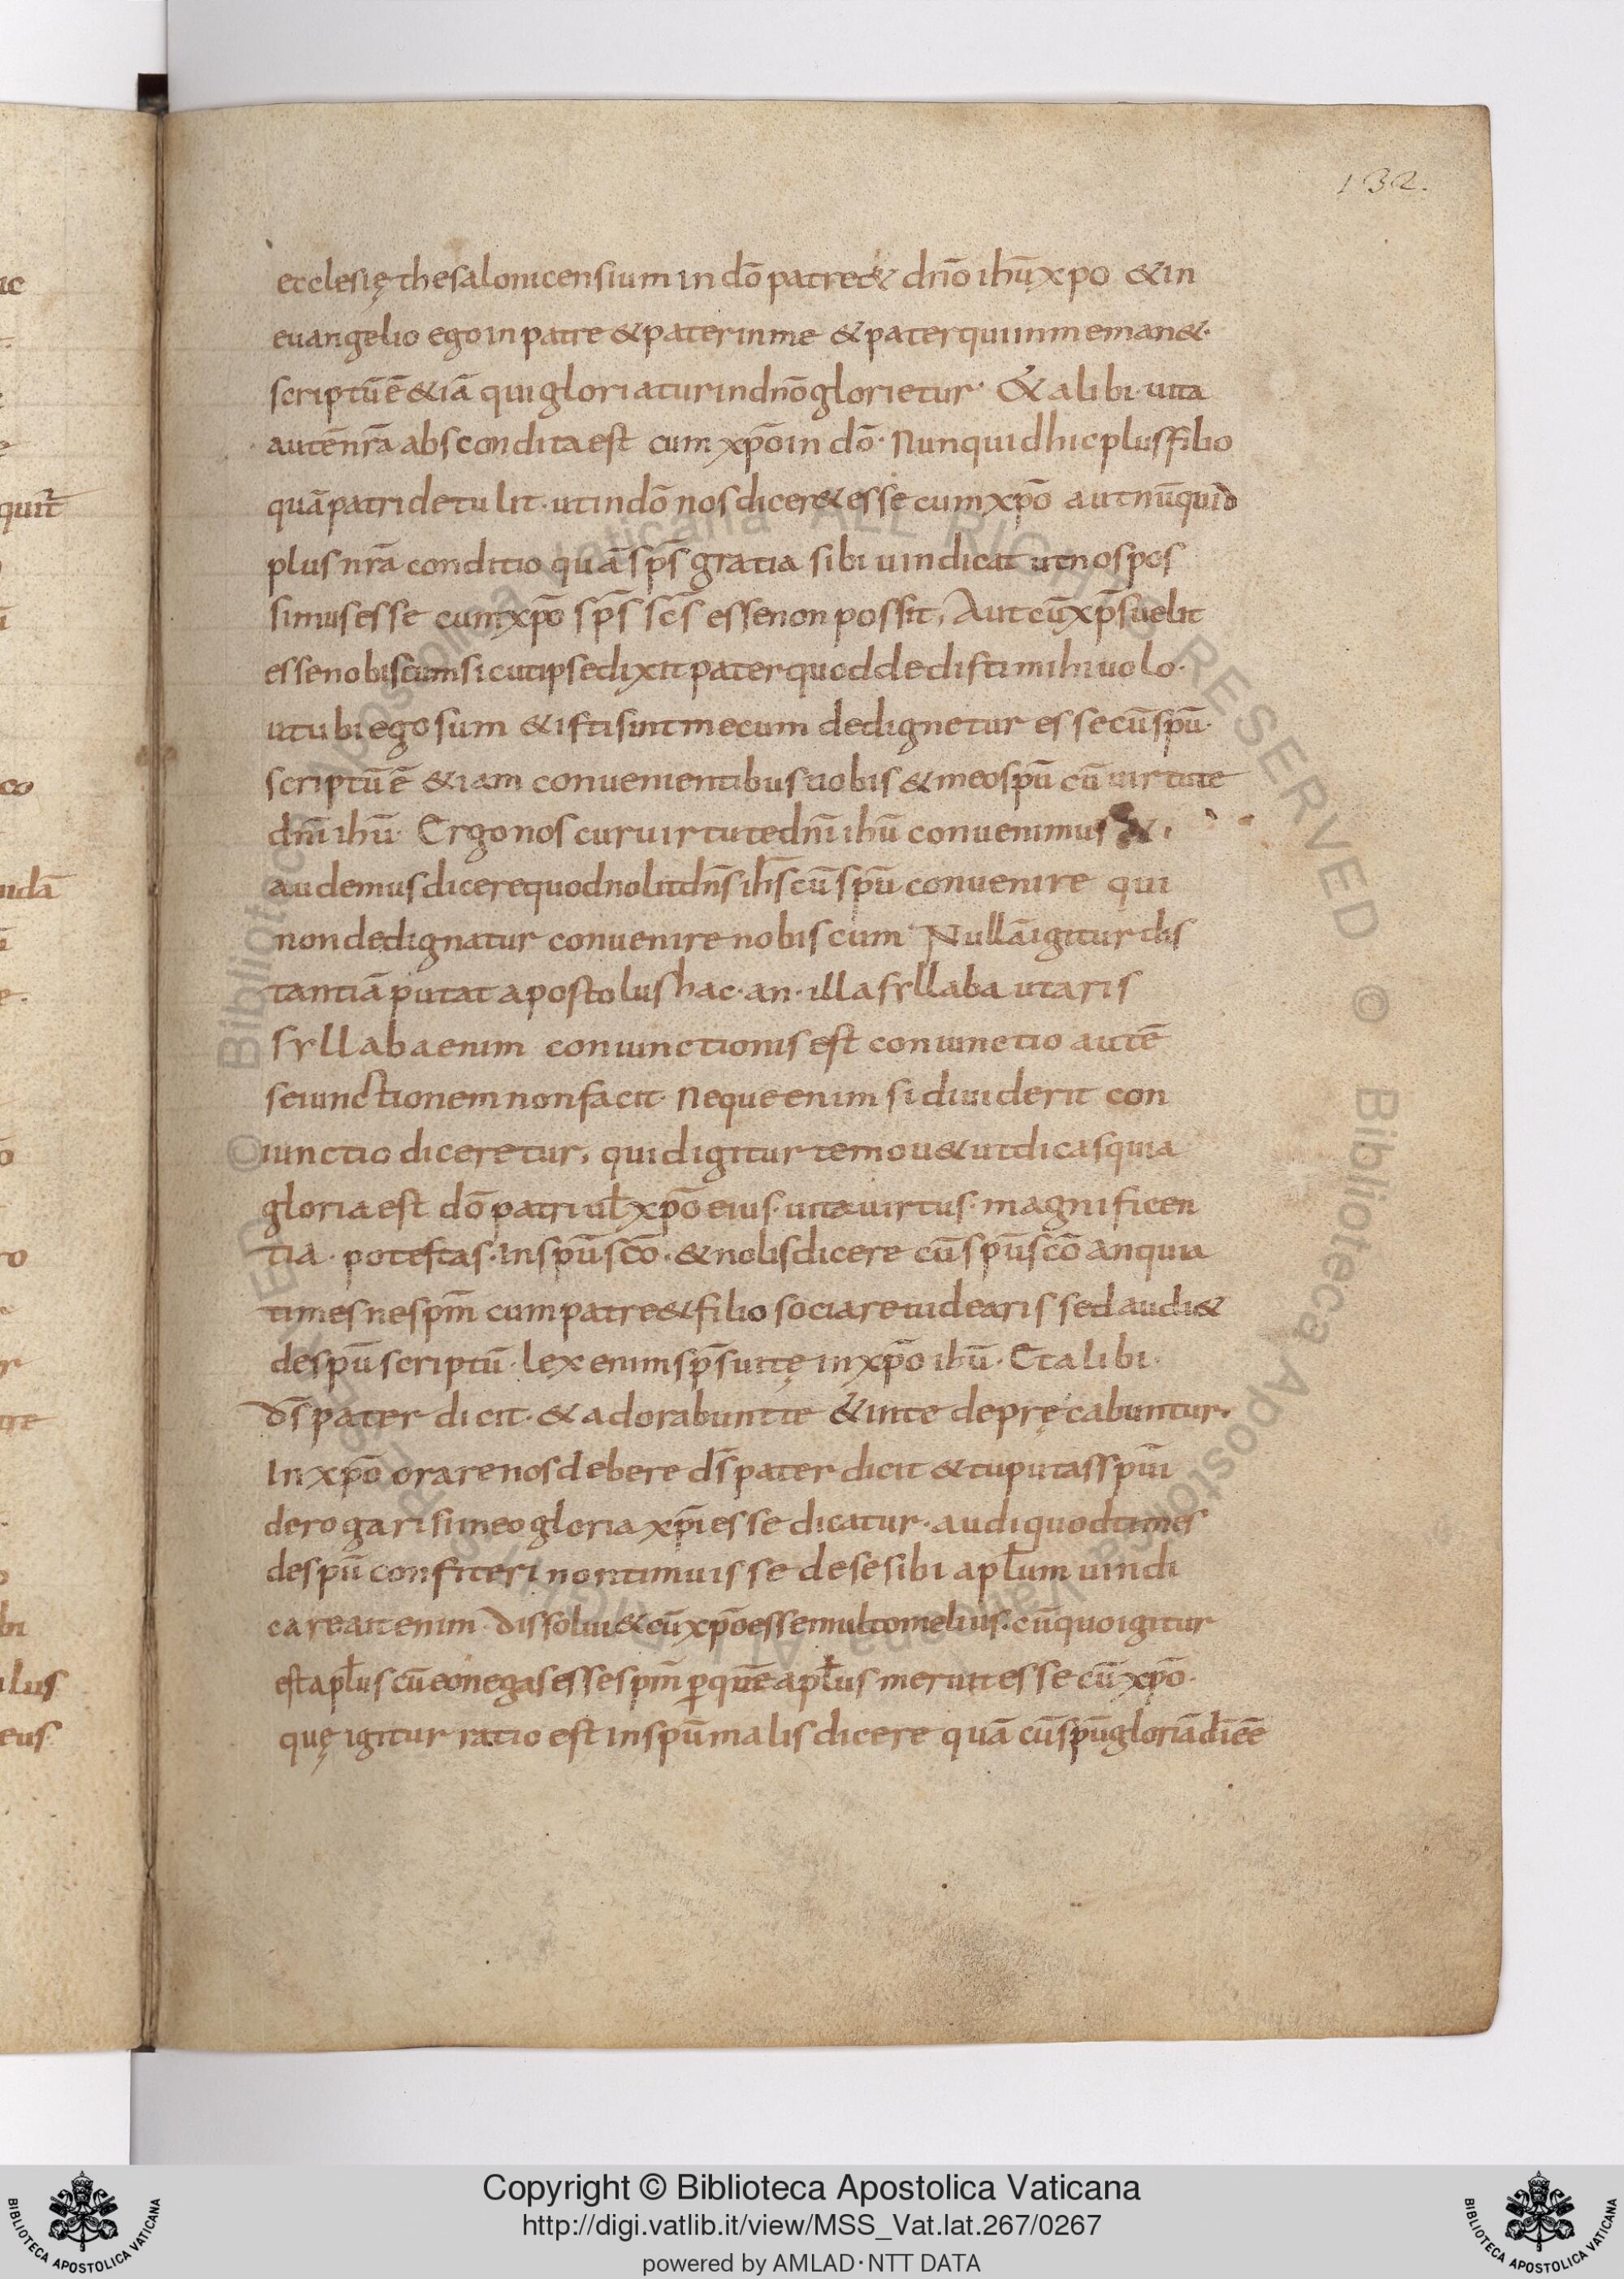 132.
ecclesię thesalonicensium in dō patre & dn̄o ihū xpo & in
euangelio ego in patre & pater in me & pater qui in me man&·
scriptū ē &iā qui gloriatur in dn̄o glorietur· & alibi· uita
autē nr̄a abscondita est cum xp̄o in dō· Nunquid hic plus filio
quā patri detulit· ut in dō nos dicer& esse cum xp̄o aut nūquid
plus nr̄a conditio quā sp̄s gratia sibi uindicat ut nos pos
simus esse cum xp̄o sp̄s sc̄s esse non possit, Aut cū xp̄s uelit
esse nobiscum sicut ipse dixit pater quod dedisti mihi uolo·
ut ubi ego sum & isti sint mecum dedignetur esse cū spū·
scriptū ē &iam conuenientibus uobis & meo spū cū uirtute
dnī ihū· Ergo nos cum uirtute dnī ihū conuenimus &
audemus dicere quod nolit dn̄s ih̄s cū spū conuenire qui
non dedignatur conuenire nobiscum· Nullā igitur dis
tantiā putat apostolus hac· an· illa syllaba utaris
syllaba enim coniunctionis est coniunctio autē
seiunctionem non facit· Neque enim si diuiderit con
iunctio diceretur, quid igitur te mou& ut dicas quia
gloria est dō patri ul̄ xp̄o eius· uita uirtus· magnificen
tia· potestas· in spū scō· & nolis dicere cū spū scō an quia
times ne spm̄ cum patre & filio sociare uidearis sed audi &
de spū scriptū· lex enim sp̄s uitę in xp̄o ihū· Et alibi·
ds̄ pater dicit· & adorabunt te & in te depręcabuntur.
In xp̄o orare nos debere ds̄ pater dicit & tu putas spm̄
derogari si in eo gloria xp̄i esse dicatur· audi quod times
de spū confiteri non timuisse de se sibi apl̄um uindi
care ait enim· dissolui & cū xp̄o esse multo melius· cū quo igitur
est apl̄us cū eo negas esse spm̄ p̱ quē apl̄us meruit esse cū xp̄o·
quę igitur ratio est in spū malis dicere quā cū spū gloriā dī eē
© Biblioteca Apostolica Vaticana ALL RIGHTS RESERVED © Biblioteca Apostolica Vaticana ALL RIGHTS RESERVED
Copyright © Biblioteca Apostolica Vaticana
http://digi.vatlib.it/view/MSS_Vat.lat.267/0267
powered by AMLAD·NTT DATA
BIBLIOTECA APOSTOLICA VATICANA
BIBLIOTECA APOSTOLICA VATICANA